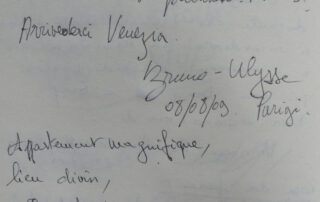 Arrivederci Venezia.
Bruno-Ulysse
08/08/09 Parigi.
Appartement magnifique,
lieu divin,